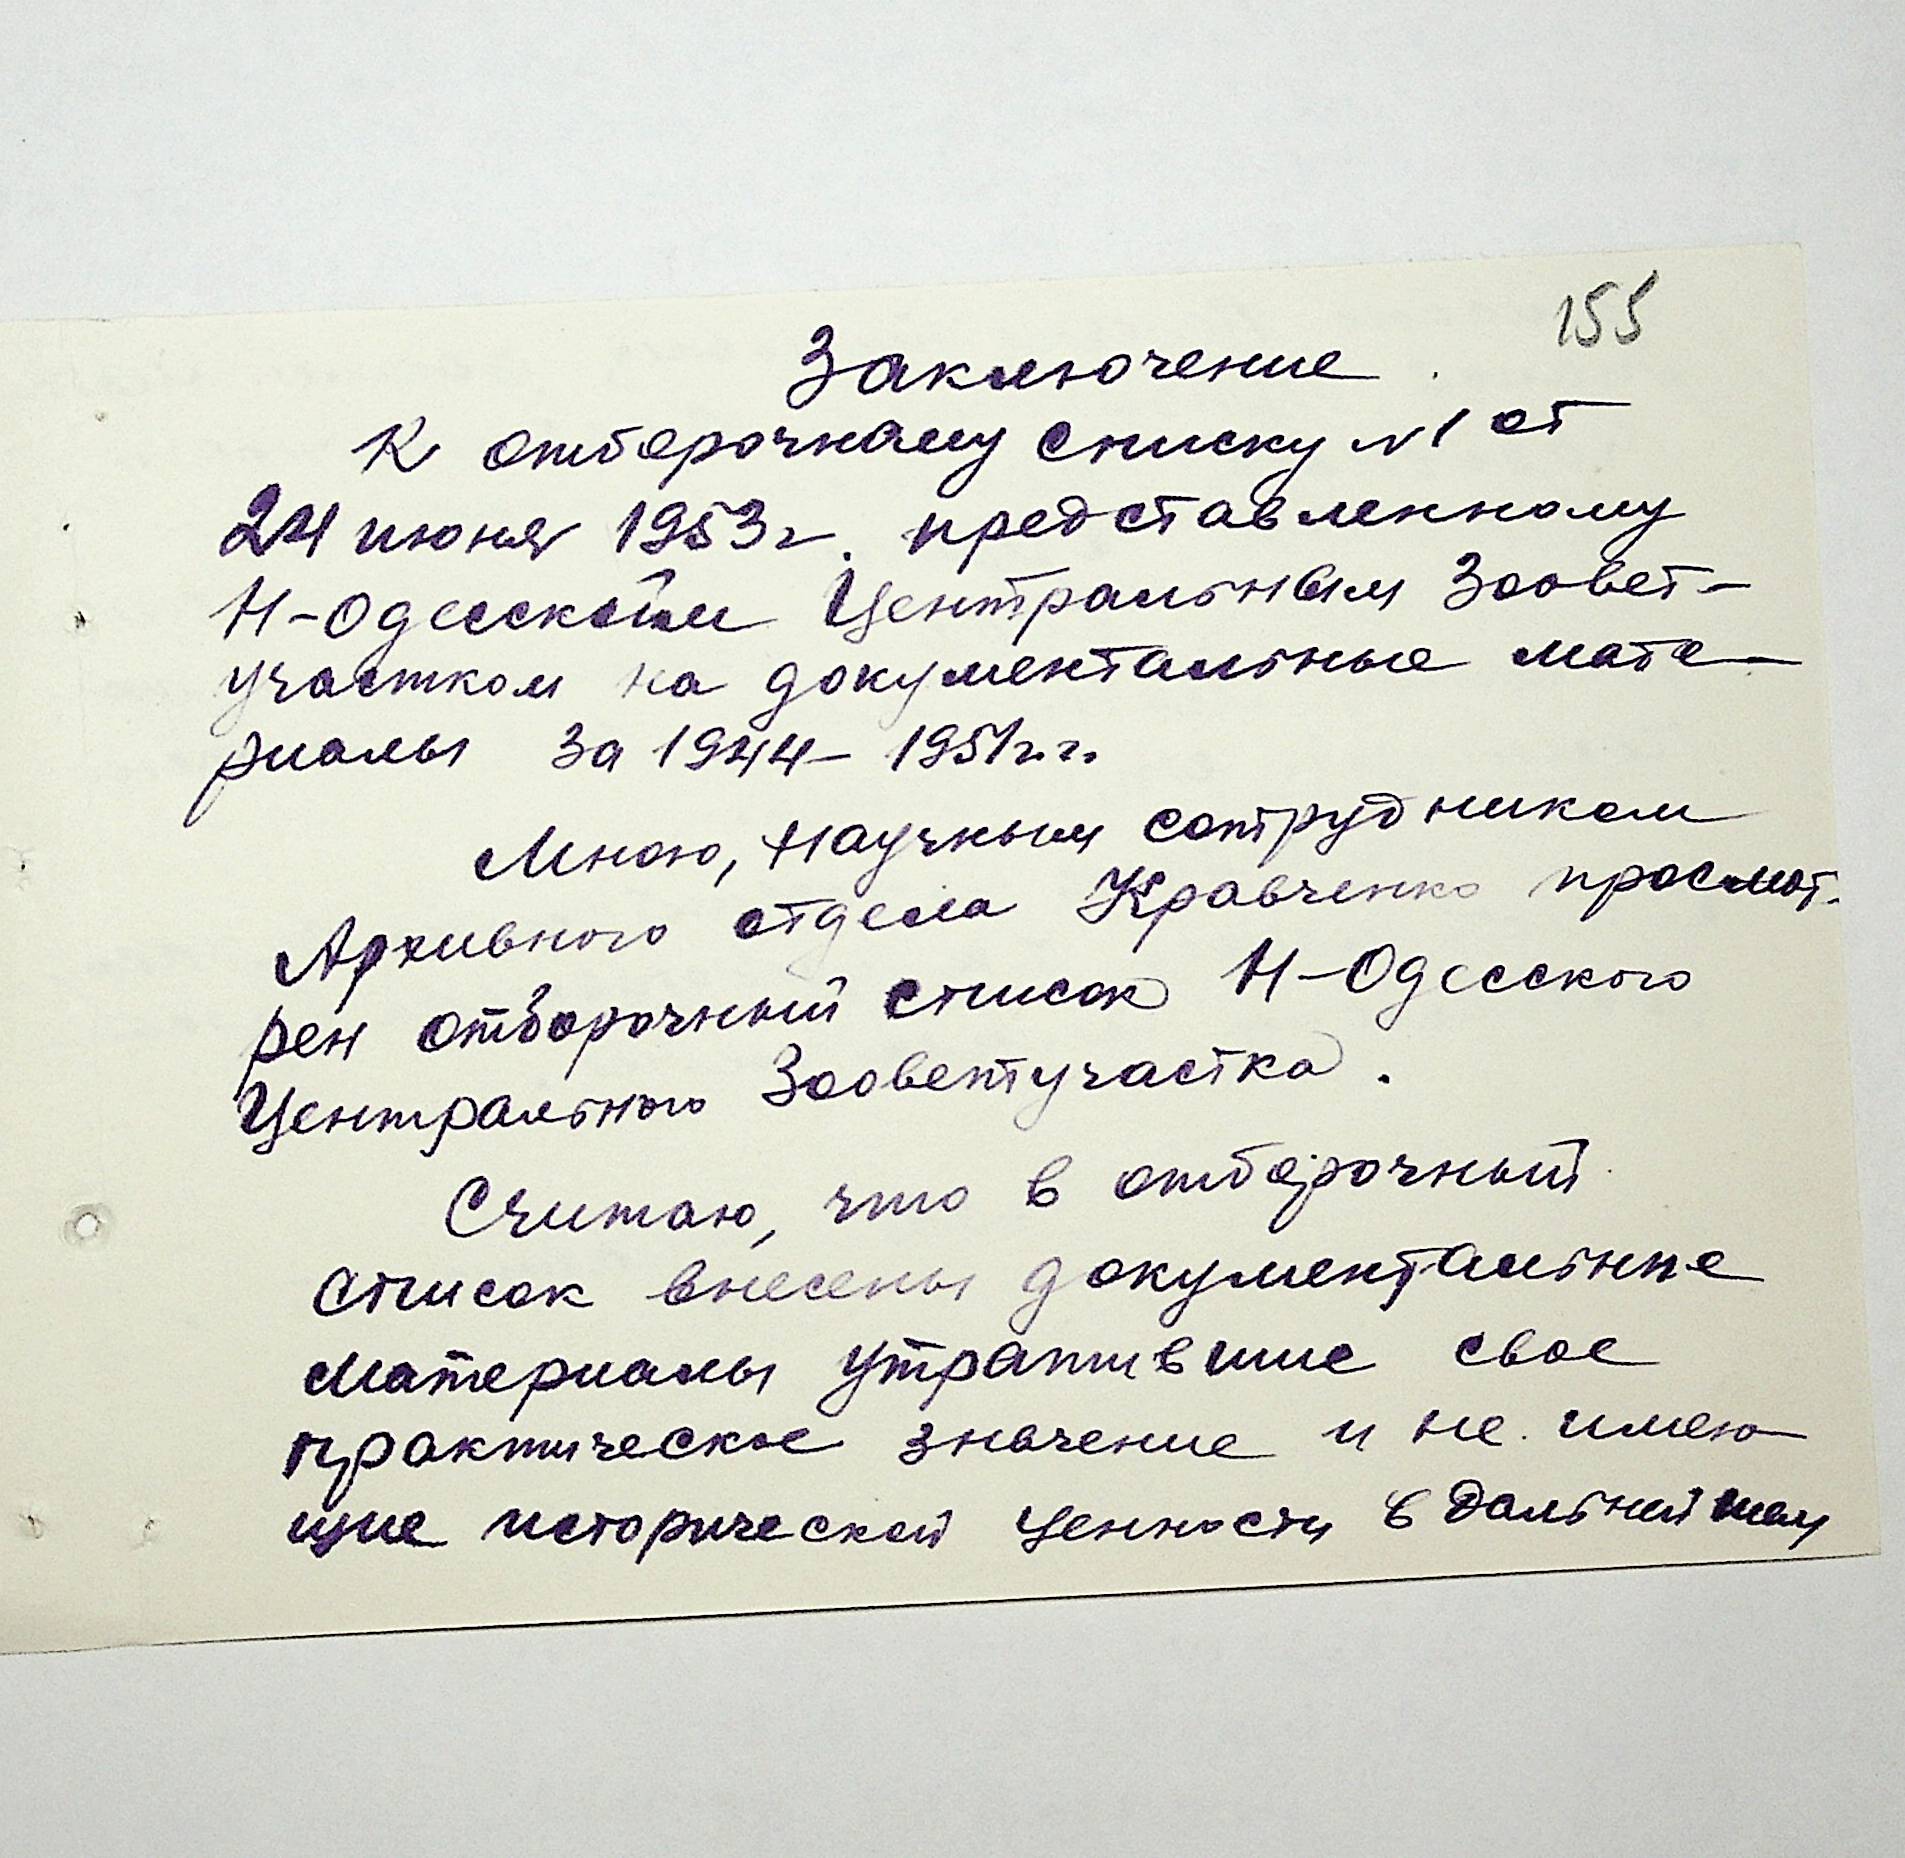 155
Заключение.
К отборочному списку N1 от
24 июня 1953г. представленному
Н-Одесским Центральным Зоовет-
участком на документальные мате-
риалы за 1944-1951г.г.
Мною, научным сотрудником
Архивного отдела Кравченко просмот-
рен отборочный список Н-Одесского
Центрального Зооветучастка.
Считаю, что в отборочный
список внесены документальные
материалы утратившие свое
практическое значение и не имею
щие исторической ценности в дальнейшем